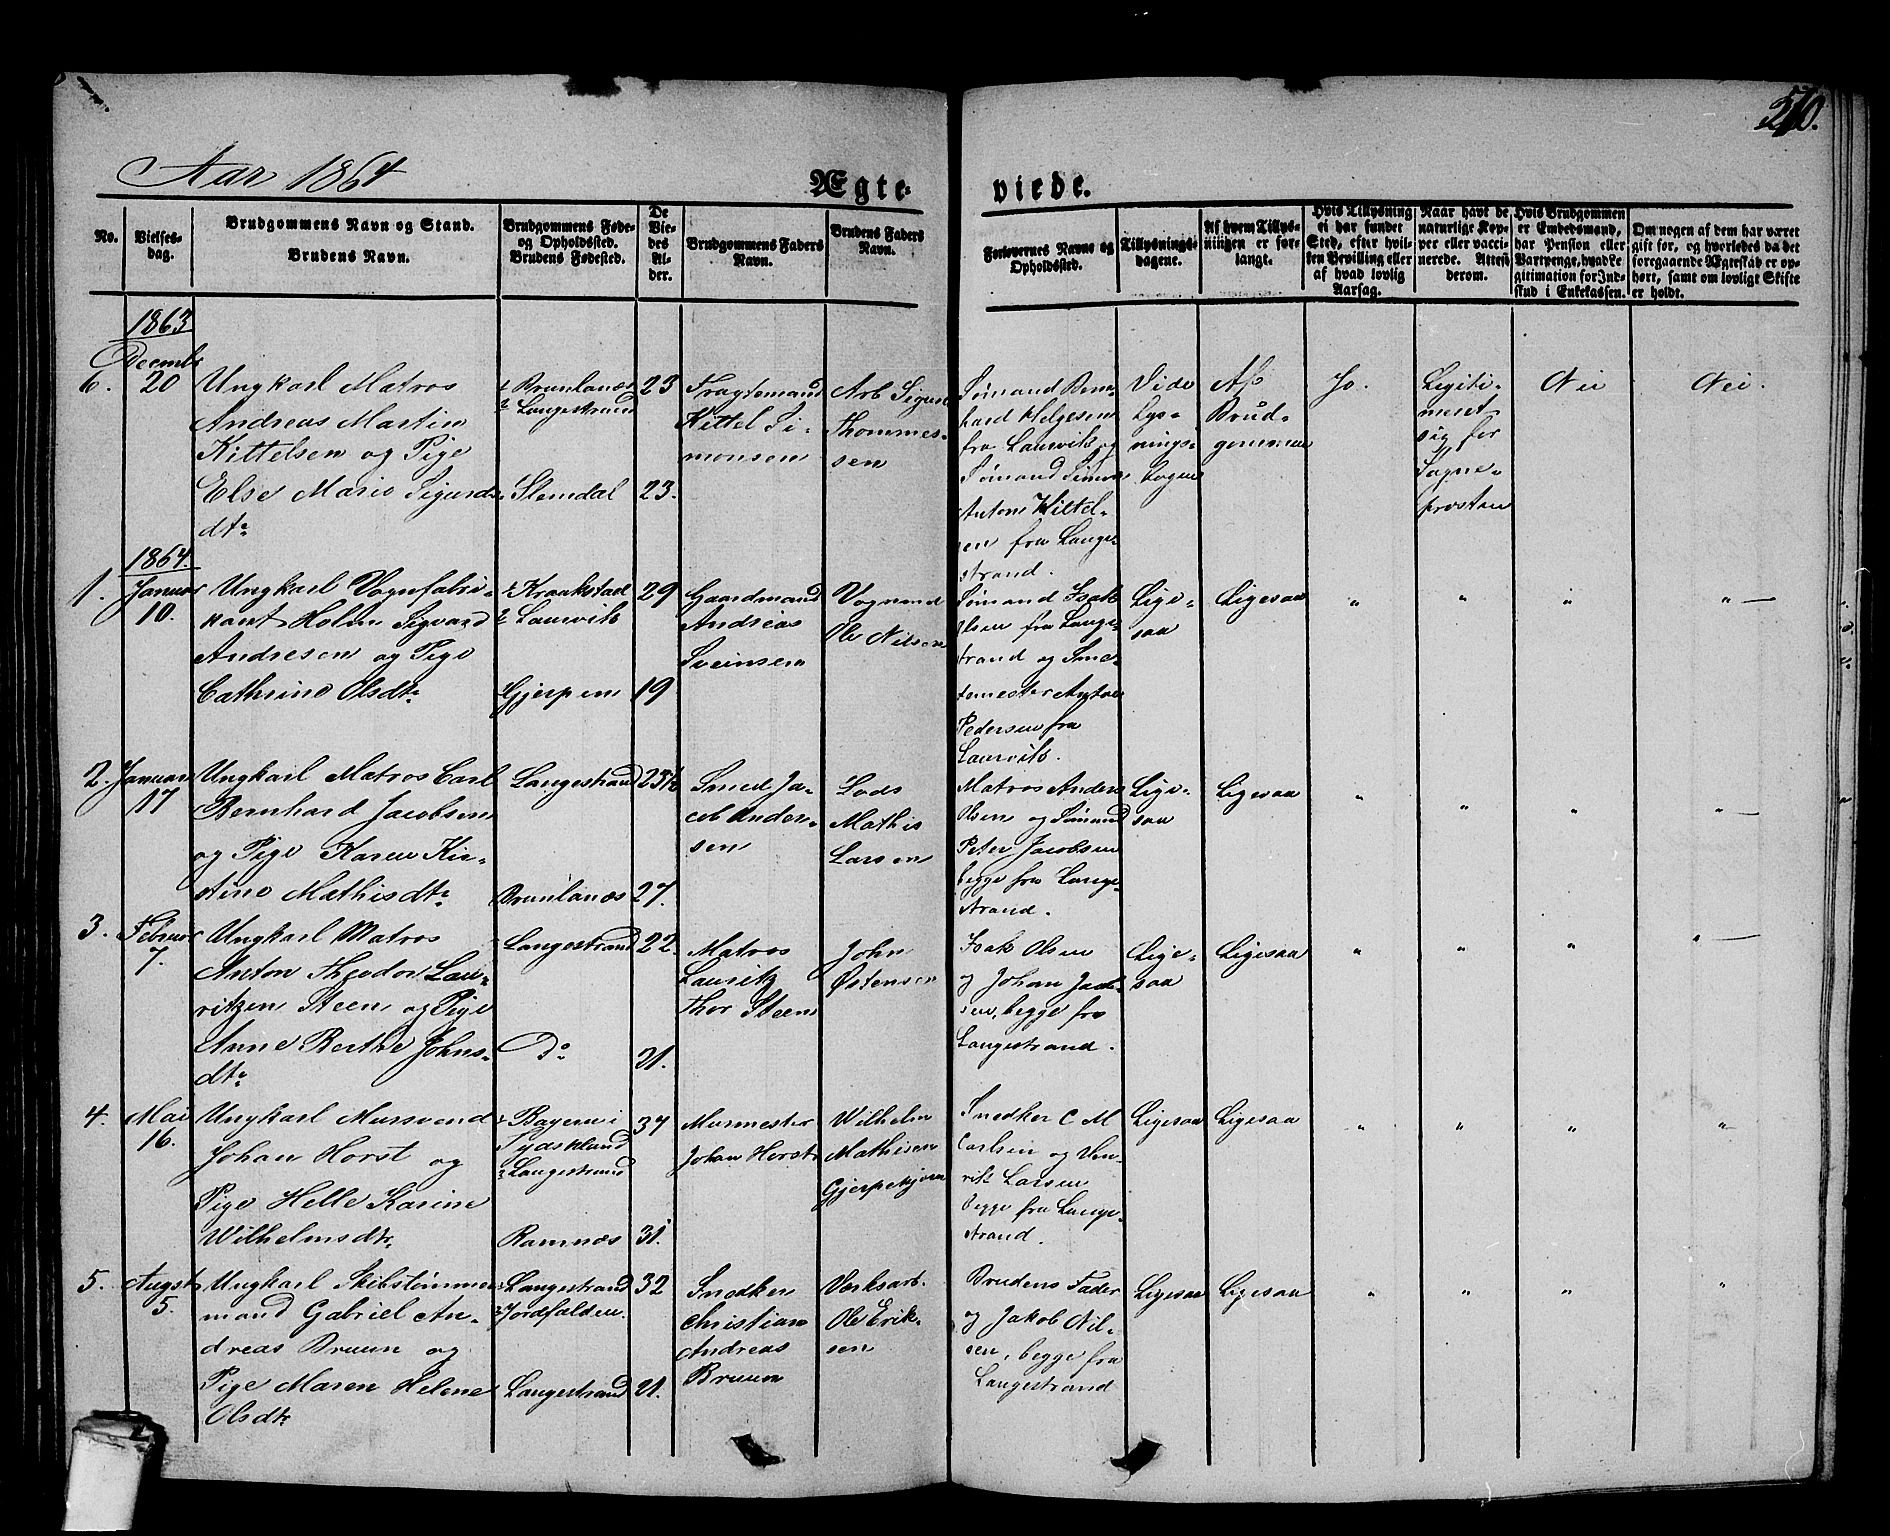 Aar 1864
Ægte-
viede.
No.
Vielses-
dag.
Brudgommens Navn og Stand.
Brudens Navn.
Brudgommens Føde-
og Opholdssted.
Brudens Fødested.
De
Vie-
des
Al-
der.
Brudgommens Faders
Navn.
Brudens Faders
Navn.
Forlovernes Navne og
Opholdssted.
Tillysnings-
dagene.
Af hvem Tillys-
ningen er for-
langt.
Hvis Tillysning
ei har fundet
Sted, efter hvil-
ken Bevilling eller
af hvad lovlig
Aarsag.
Naar havt de
naturlige Kop-
per eller vacci-
nerede. Attest
derom.
Hvis Brudgommen
er Embedsmand,
har Pension eller
Vartpenge, hvad Le-
gitimation for Ind-
skud i Enkekassen.
Om nogen af dem har været
gift før, og hvorledes da det
foregaaende Ægteskab er op-
hørt, samt om lovligt Skifte
er holdt.
1863
Decembr
6. 20
Ungkarl Matros
Andreas Martin
Kittelsen og Pige
Else Marie Sigurds-
dtr
Brunlanæs
Langestrand
Slemdal
23
23.
Fragtemand
Kittel Si-
monsen
Arb Sigurd
Thommes-
sen
Sømand Bern-
hard Helgesen
fra Laurvik og
Sømand Simon
Anton Kittel-
sen fra Lange-
strand.
Vide
Lys-
nings-
bogen
Af
Brud-
gommen
Jo.
Legiti-
meret
sig for
Sogne-
presten
Nei
Nei.
1864.
1. Januar
10.
Ungkarl Vognfabri-
kant Holm Sigvard
Andresen og Pige
Cathrine Olsdtr
Kraakstad
Laurvik
Gjerpen
29
19
Gaardmand
Andreas
Sveinsen
Vognmd
Ole Nilsen
Sømand Isak
Olsen fra Lange-
strand og Sme-
demester Anton
Pedersen fra
Laurvik.
Lige-
saa
Ligesaa
" " " "
2. Januar
17
Ungkarl Matros Carl
Bernhard Jacobsen
og Pige Karen Kir-
stine Mathisdtr
Langestrand
Brunlanæs
25½
27.
Smed Ja-
cob Ander-
sen
Lods
Mathis
Larsen
Matros Anders
Olsen og Sømand
Peter Jacobsen
begge fra Lange-
strand.
Lige-
saa
Ligesaa
" " " "
3. Februar
7.
Ungkarl Matros
Anton Theodor Lau-
ritzen Steen og Pige
Anne Berthe Johns-
dtr
Langestrand
Do
22.
21.
Matros
Lauritz
Thor Steen
John
Østensen
Isak Olsen
og Johan Jacob-
sen, begge fra
Langestrand.
Lige-
saa
Ligesaa
" " " "
4. Mai
16.
Ungkarl Mursvend
Johan Horst og
Pige Helle Karine
Wilhelmsdtr
Bayern i
Tydskland
Langestrand
Ramnæs
37
31.
Murmester
Johan Horst
Wilhelm
Mathisen
Snedker C M
Carlsen og Hen-
rik Larsen
begge fra Lange-
strand.
Ligesaa
Ligesaa
" " " "
5. Augst
5.
Ungkarl Skibstømmer-
mand Gabriel An-
dreas Bruun og
Pige Maren Helene
Olsdtr
Langestrand
Jordfalden.
Langestrand
32
21.
Snedker
Christian
Andreas
Bruun
Værksarb.
Ole Erik-
sen
Brudens Fader
og Jakob Nil-
sen, begge fra
Langestrand
Ligesaa
Ligesaa
" " " "